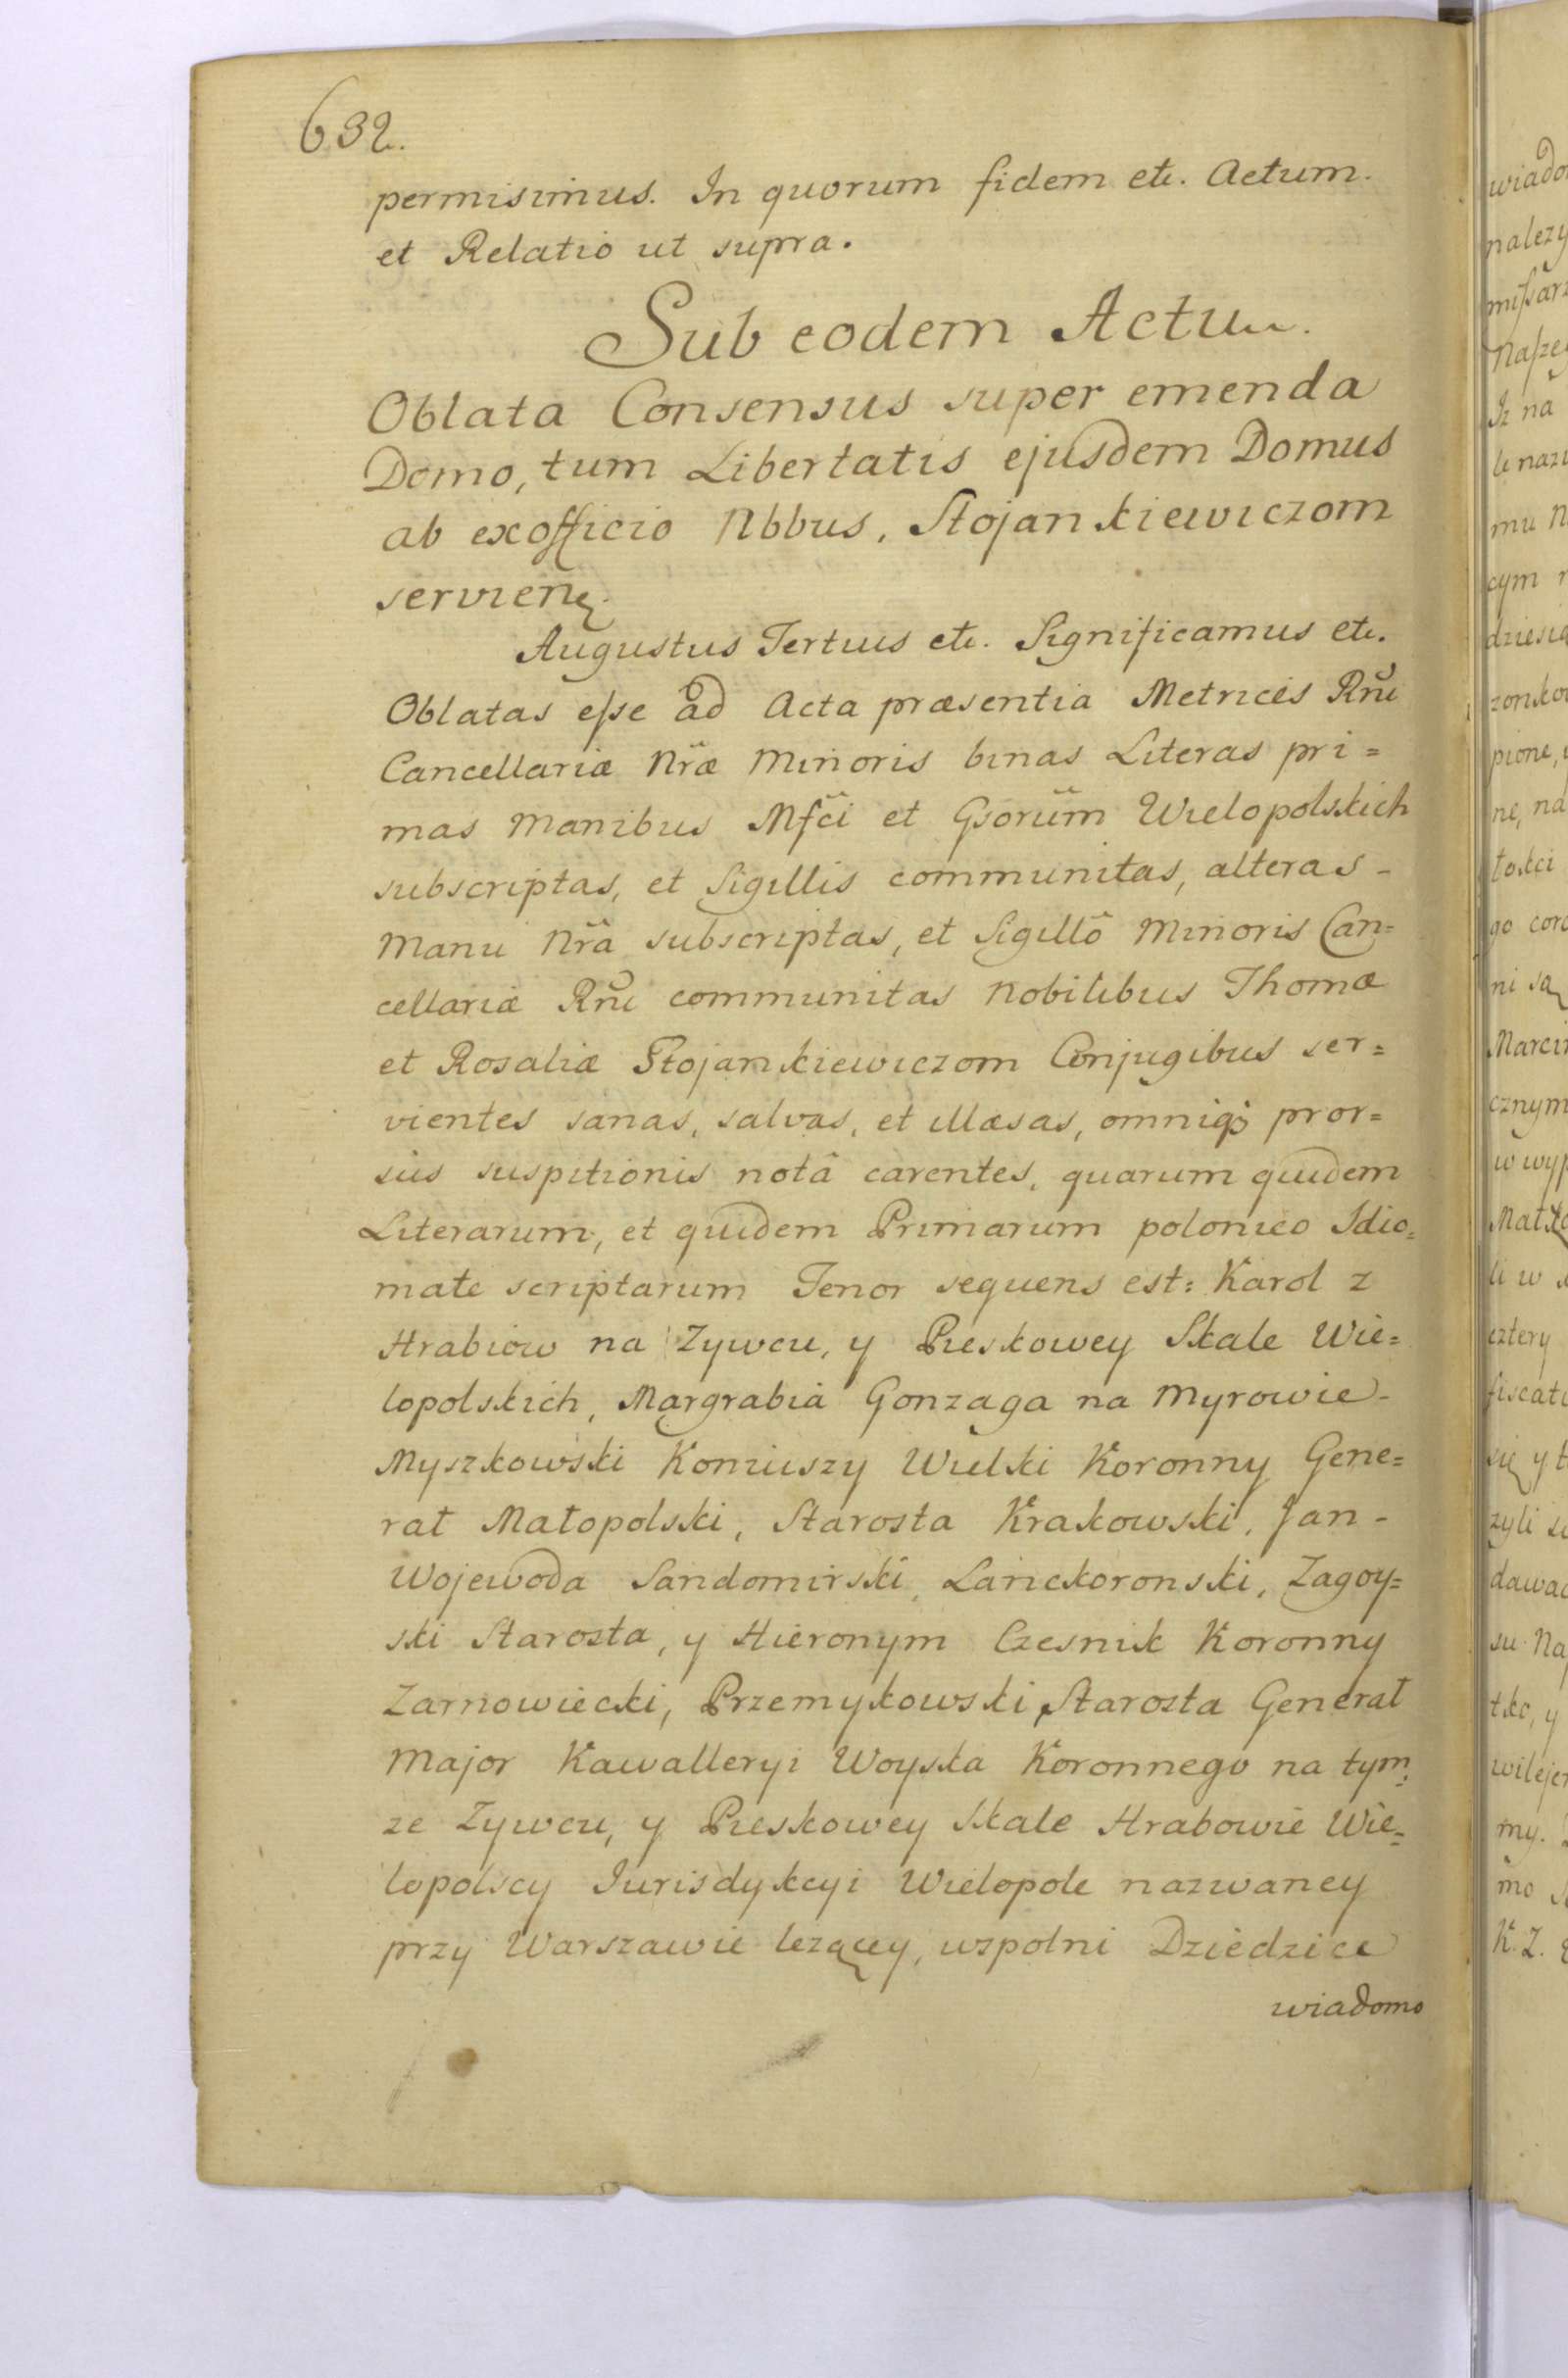 632.
permisimus. In quorum fidem etc. Actum.
et Relatio ut supra.
Sub eodem Actu.
Oblata Consensus super emenda
Domo, tum Libertatis ejusdem Domus
ab exofficio Nbbus, Stojankiewiczom
servien
Augustus Tertius etc. Significamus etc.
Oblatas esse ad Acta præsentia Metrices Rni
Cancellariæ Nræ Minoris binas Literas pri=
mas Manibus Mfci et Gsorum Wielopolskich
subscriptas, et Sigillis communitas, alteras-
Manu Nrâ subscriptas, et Sigillô Minoris Can=
cellariæ Rni communitas Nobilibus Thomæ
et Rosaliæ Stojankiewiczom Conjugibus ser=
vientes sanas, salvas, et illæsas, omniq; pror=
sus suspitionis notâ carentes, quarum quidem
Literarum, et quidem Primarum polonico Idio=
mate scriptarum Tenor sequens est: Karol z
Hrabiow na Zywcu, y Pieskowey Skale Wie=
lopolskich, Margrabia Gonzaga na Myrowie-
Myszkowski Koniuszy Wielki Koronny Gene=
rał Małopolski, Starosta Krakowski, Jan-
Wojewoda Sandomirski, Lanckoronski, Zagoy=
ski Starosta, y Hieronym Czesnik Koronny
Zarnowiecki, Przemykowski, Starosta Generał
Major Kawalleryi Woyska Koronnego na tym=
ze Zywcu, y Pieskowey Skale Hrabowie Wie=
lopolscy Jurisdykcyi Wielopole nazwaney
przy Warszawie lezącey, wspolni Dziedzice
wiadomo